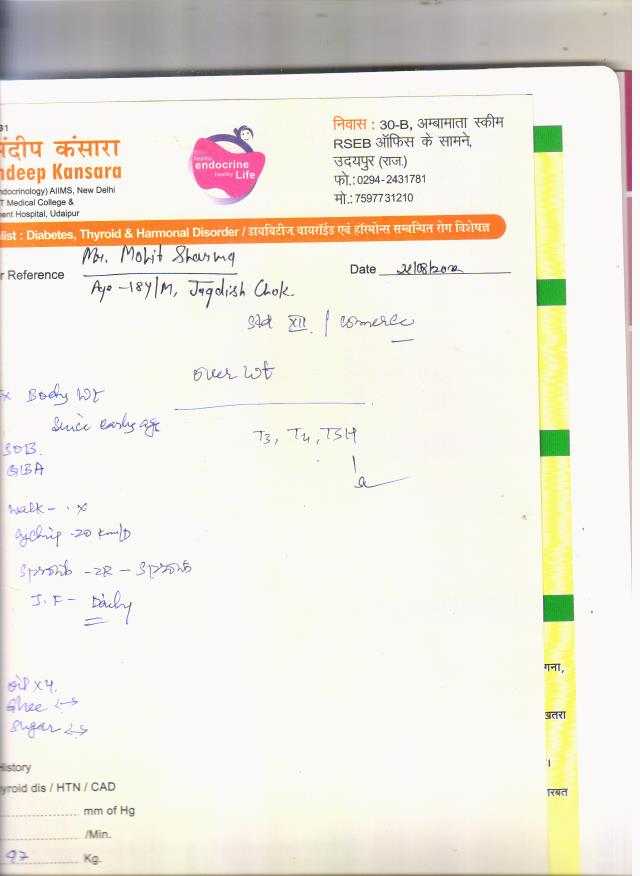 31
ंदीप कंसारा
ndeep Kansara
ndocrinology) AIIMS, New Delhi
T Medical College &
ent Hospital, Udaipur
healthy
endocrine
healthy Life
निवास : 30-B, अम्बामाता स्कीम
RSEB ऑफिस के सामने,
उदयपुर (राज.)
फो.:0294-2431781
मो.:7597731210
list : Diabetes, Thyroid & Harmonal Disorder / डायबिटीज, थायरॉईड एवं हॉरमोन्स सम्बन्धित रोग विशेषज्ञ
r Reference Mr. Mohit Sharma Date
Age - 18Y/M, Jagdish Chok.
Std XII / Comerce
over wt
Body Wt
Since early age
SOB.
T3, T4, TSH
walk - x
cycling - 20 km/D
J.F - Daily
oil x 4.
Ghee
Sugar
History
yroid dis / HTN / CAD
mm of Hg
/Min.
97 Kg.
गना,
खतरा
।
ारबत